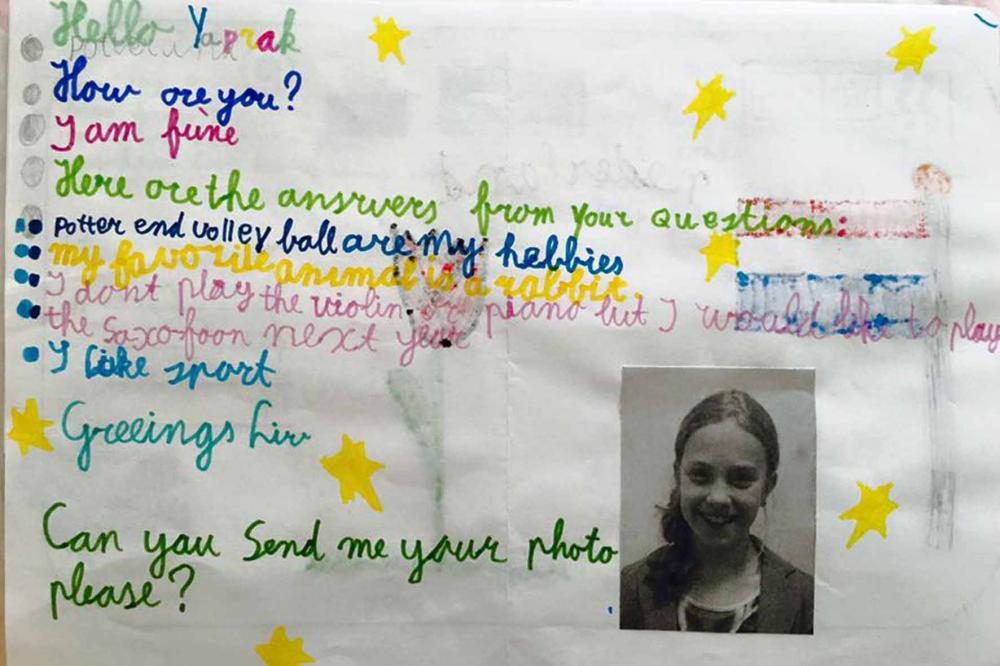 Hello Yaprak
How are you?
I am fine
Here are the answers from your questions:
potter end volley ball are my hebbies
my favorite animal is a rabbit.
I dont play the violin or piano but I would like to play
the saxofoon next year
I like sport
Greeings Liv
Can you Send me your photo
please?